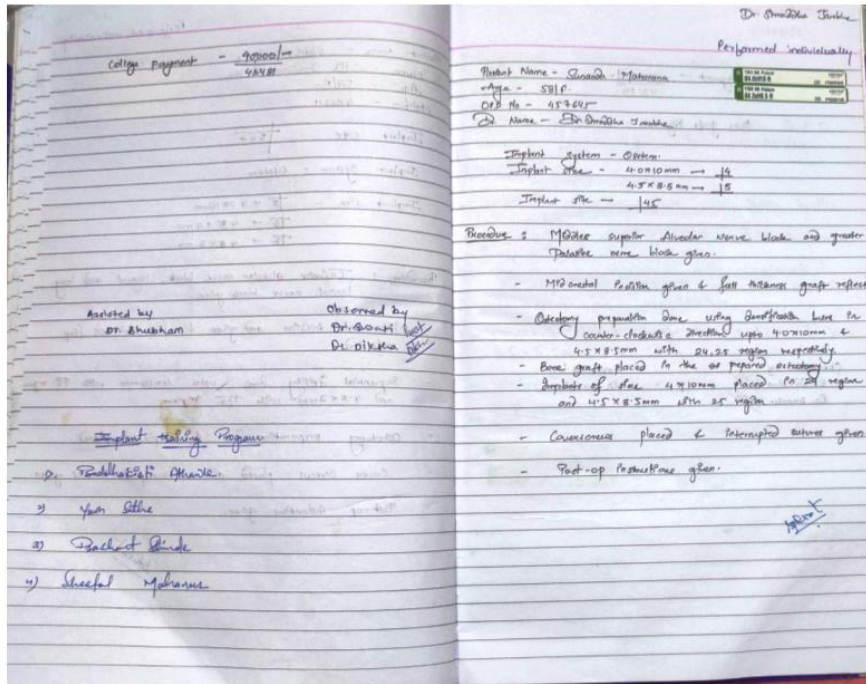 College payment - 90000/-
48481
Assisted by
Dr. Shubham
Observed by
Dr.
Dr. Diksha
Implant training Program
1)
2) Yash
3)
4) Sheetal
Dr. Shraddha
Performed individually
Patient Name - Sunanda
Age - 58/F
OPD No - 457645
Dr. Name - Dr Shraddha
Implant system - Osstem
Implant size - 4.0x10mm → 4
4.5 x 8.5 mm → 5
Implant site → 45
Procedure : Middle superior Alveolar nerve block and greater
Palatine nerve block given.
- Mid crestal incision given & full thickness graft reflect
- Osteotomy preparation done using densification burs in
counter-clockwise direction upto 4.0x10mm &
4.5 x 8.5mm with 24,25 region respectively.
- Bone graft placed in the prepared osteotomy.
- Implants of size 4x10mm placed in 24 region
and 4.5 x 8.5mm with 25 region
- placed & interrupted sutures given
- Post-op instructions given.